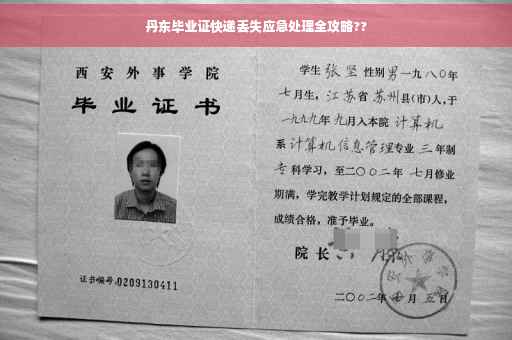 丹东毕业证快递丢失应急处理全攻略??
西安外事学院
毕业证书
证书编号:0209130411
学生 张坚 性别 男 一九八〇年
七月生, 江苏省 苏州县(市)人, 于
一九九九年 九月入本院 计算机
系 计算机信息管理专业 三 年制
专 科学习, 至二〇〇二年 七月修业
期满, 学完教学计划规定的全部课程,
成绩合格, 准予毕业。
院长
二〇〇二年 月 五日